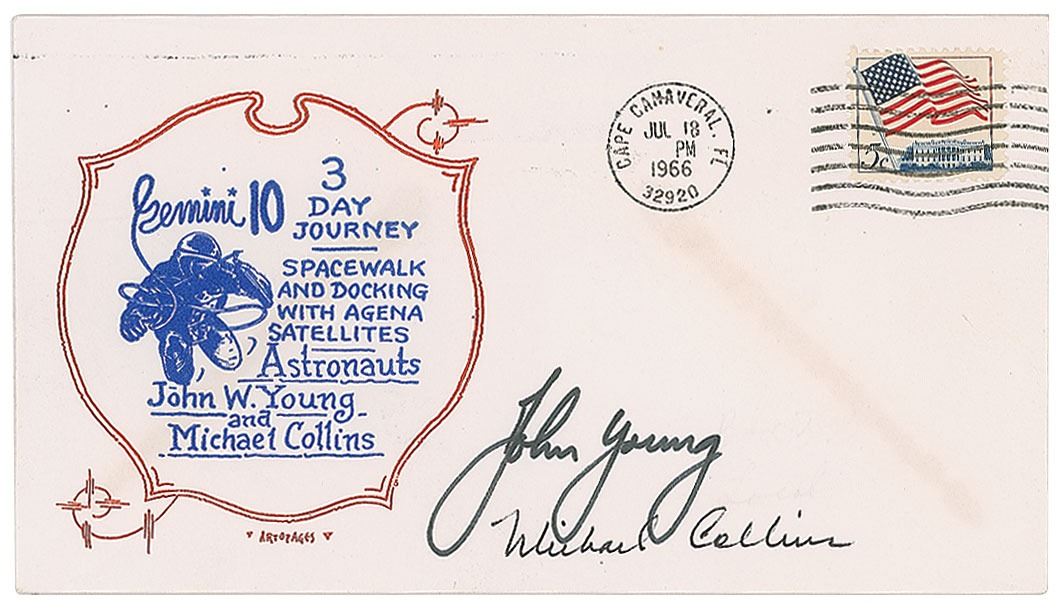 CAPE CANAVERAL, FL
JUL 18
PM
1966
32920
5c
Gemini 10
3
DAY
JOURNEY
SPACEWALK
AND DOCKING
WITH AGENA
SATELLITES
Astronauts
John W. Young
and
Michael Collins
ARTOPAGES
John Young
Michael Collins